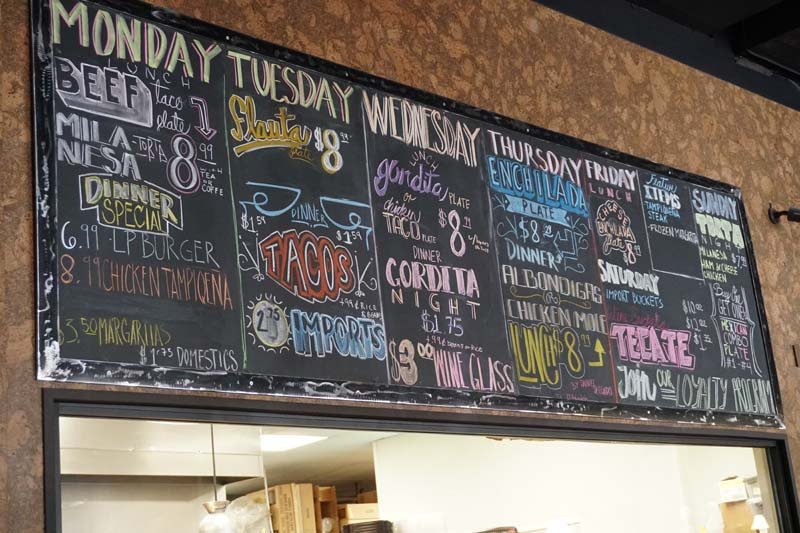 MONDAY
LUNCH
BEEF taco plate
MILANESA TORTA 8.99
TEA OR COFFEE
DINNER SPECIAL
6.99 LP BURGER
8.99 CHICKEN TAMPIQEÑA
$3.50 MARGARITAS
$1.75 DOMESTICS
TUESDAY
flauta plate $8.99
DINNER
$1.59 $1.59
TACOS
.99¢ RICE
2.75 IMPORTS
WEDNESDAY
LUNCH
gordita PLATE
or chicken
TACO PLATE $8
DINNER
GORDITA
NIGHT
$1.75
.99¢ Beans or Rice
$3.00 WINE GLASS
THURSDAY
ENCHILADA
PLATE
$8
DINNER
ALBONDIGAS
OR
CHICKEN MOLE
LUNCH $8.99
FRIDAY
LUNCH
CHEESE
ENCHILADA
plate
ITEMS
TAMPIQUEÑA
STEAK
FROZEN MARGARITA
SATURDAY
IMPORT BUCKETS $10
$12
TECATE
SUNDAY
TORTA
NIGHT $7
MILANESA
HAM & CHEESE
CHICKEN
Buy One
GET ONE
MEXICAN
COMBO
PLATE
#1-#4
Join OUR LOYALTY PROGRAM